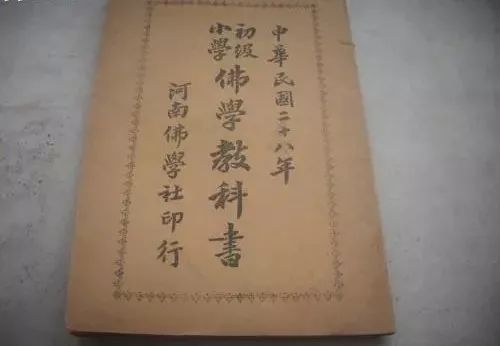 中華民國二十八年
初級小學佛學教科書
河南佛學社印行